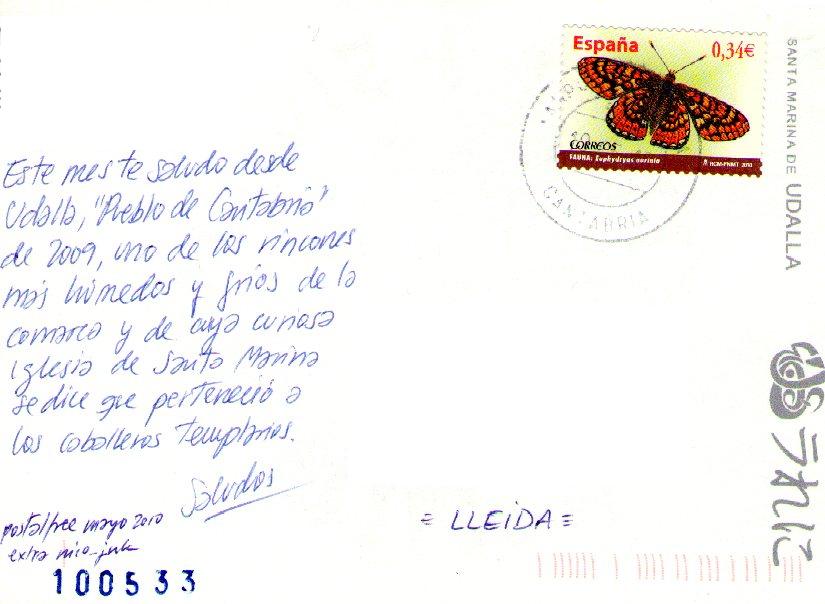 España
0,34€
CORREOS
FAUNA: Euphydryas aurinia
RCM-FNMT 2010
CANTABRIA
SANTA MARINA DE UDALLA
Este mes te saludo desde
Udalla, "Pueblo de Cantabria"
de 2009, uno de los rincones
más húmedos y fríos de la
comarca y de cuya curiosa
iglesia de Santa Marina
se dice que perteneció a
los caballeros templarios.
Saludos
postalfree mayo 2010
extra
100533
= LLEIDA =